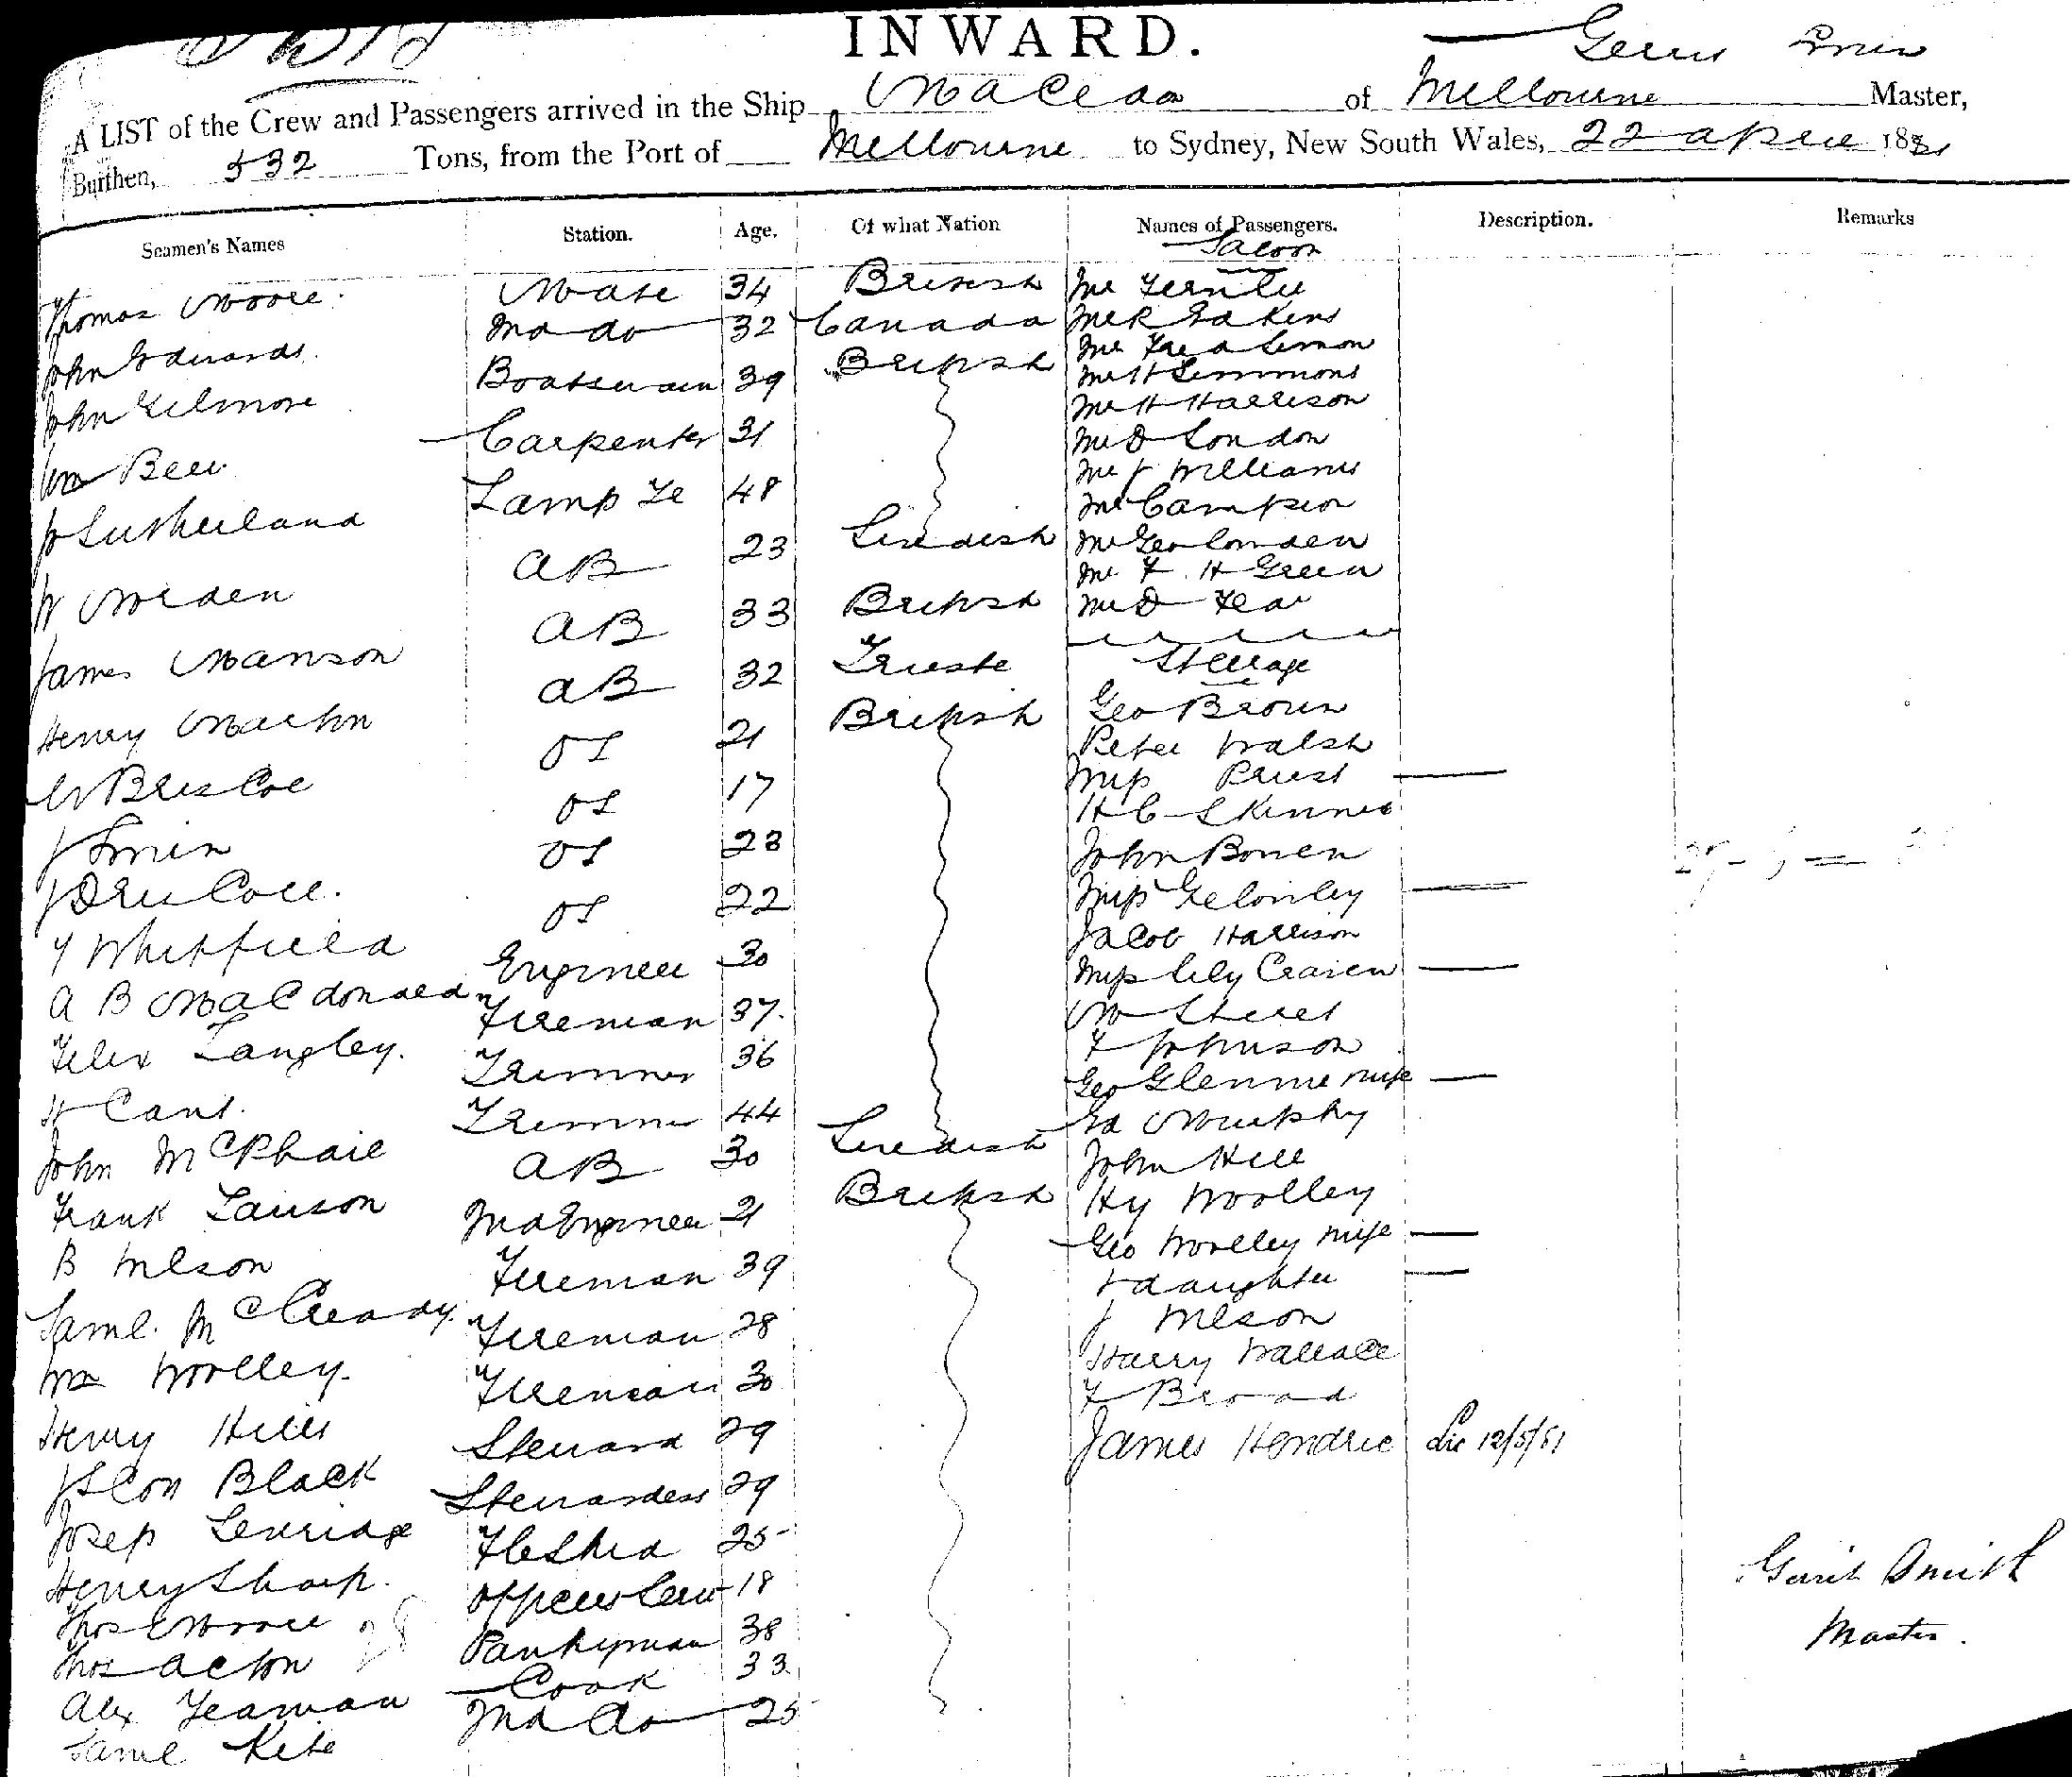 INWARD.
A LIST of the Crew and Passengers arrived in the Ship Macedon of Melbourne Master,
Burthen, 532 Tons, from the Port of Melbourne to Sydney, New South Wales, 22 April 1881
Seamen's Names Station. Age. Of what Nation Names of Passengers. Description. Remarks
Saloon
Thomas Moore Mate 34 British Mr Fernlee
John Edwards 2nd do 32 Canada Mr R Edkins
Mr Fred Lemon
John Gilmore Boatswain 39 British Mr H Simmons
Mr H Harrison
Wm Bell Carpenter 31 Mr D London
Mr J Williams
J Sutherland Lamp 48 Mr Campion
23 Swedish Mr Geo
AB Mr F. H Green
James Manson AB 33 British Mr D
Steerage
Henry Martin AB 32 Trieste Geo Brown
W Briscoe OS 21 British Peter Walsh
Miss Priest
OS 17 H C Skinner
J Driscoll OS 23 John Bowen
Miss
T Whitfield OS 22 Jacob Harrison
A B MacDonald Engineer 30 Miss Lily Craven
Felix Langley Fireman 37
H Cant. Trimmer 36 F Johnson
Geo Glennie wife
John McPhail Trimmer 44 Ed Murphy
Frank Lauson AB 30 Swedish John Hill
B Wilson 2nd Engineer 21 British Hy Woolley
Saml. McCready Fireman 39 Geo Woolley wife
& daughter
Wm Woolley Fireman 28 J Wilson
Harry Wallace
Henry Hills Fireman 30 F Broad
Black Steward 29 James Hendric Lic 12/5/81
Stewardess 29
Henry Sharp. 25
Thos Moore Officers Servt 18
Thos Acton Pantryman 38
Alex Yeaman Cook 33
Saml Kite 2nd do 25
Gerrit Smith
Master.